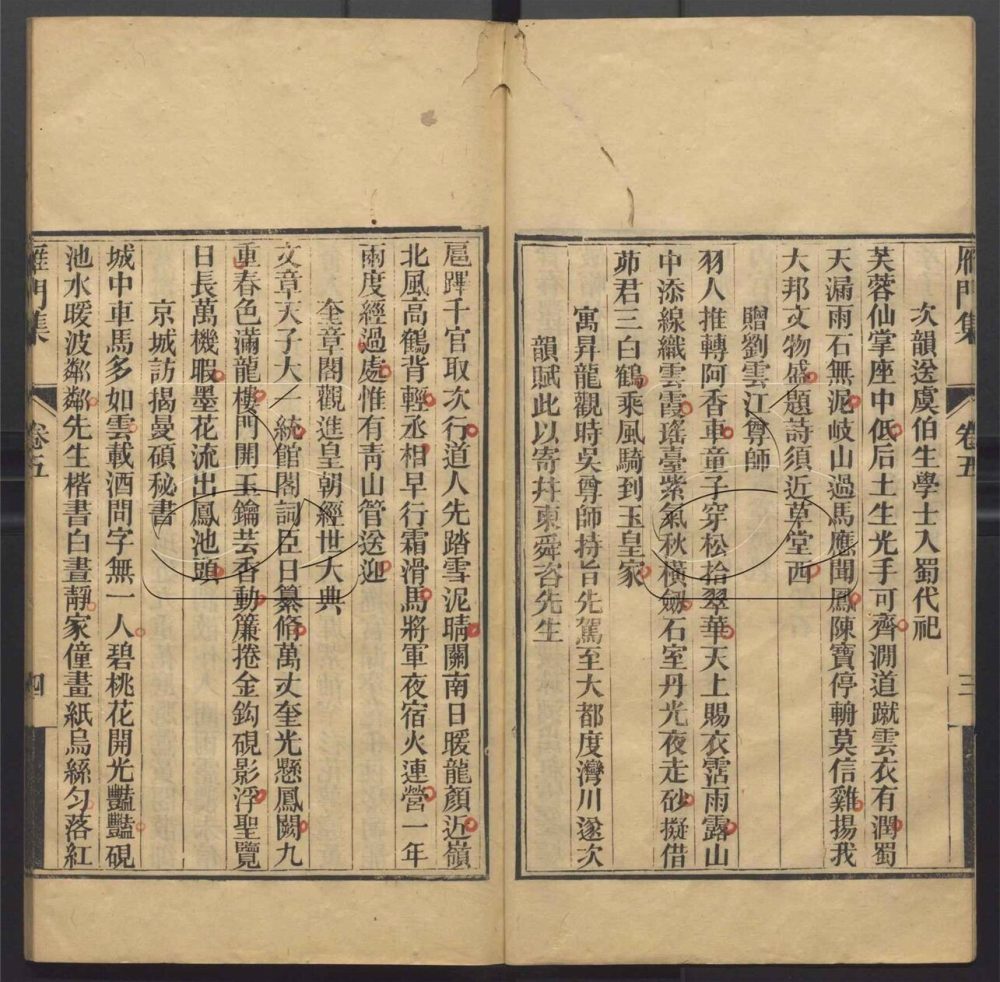 雁門集 卷五 三
次韻送虞伯生學士入蜀代祀
芙蓉仙掌座中低后土生光手可齊澗道蹴雲衣有潤蜀
天漏雨石無泥岐山過馬應聞鳳陳寶停輈莫信雞揚我
大邦文物盛題詩須近草堂西
贈劉雲江尊師
羽人推轉阿香車童子穿松拾翠華天上賜衣霑雨露山
中添線織雲霞瑤臺紫氣秋橫劒石室丹光夜走砂擬借
茆君三白鶴乘風騎到玉皇家
寓昇龍觀時吳尊師持旨先駕至大都度灣川遂次
韻賦此以寄井東舜咨先生
扈蹕千官取次行道人先踏雪泥晴關南日暖龍顏近嶺
北風高鶴背輕丞相早行霜滑馬將軍夜宿火連營一年
兩度經過處惟有青山管送迎
奎章閣觀進皇朝經世大典
文章天子大一統館閣詞臣日纂脩萬丈奎光懸鳳闕九
重春色滿龍樓門開玉鑰芸香動簾捲金鈎硯影浮聖覽
日長萬機暇墨花流出鳳池頭
京城訪揭曼碩秘書
城中車馬多如雲載酒問字無一人碧桃花開光豔豔硯
池水暖波粼粼先生楷書白晝靜家僮畫紙烏絲匀落紅
雁門集 卷五 四